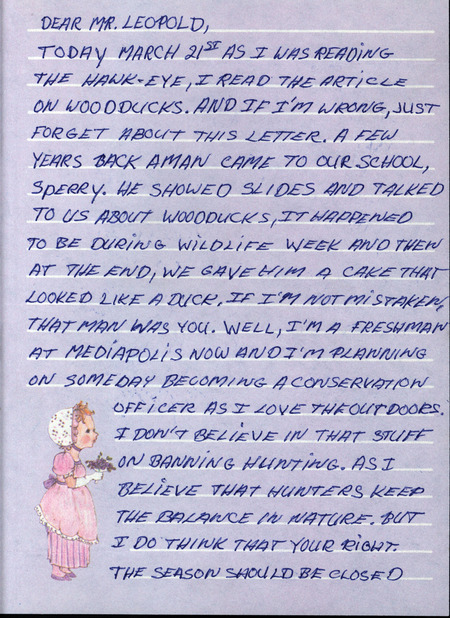 DEAR MR. LEOPOLD,
TODAY MARCH 21ST AS I WAS READING
THE HAWK-EYE, I READ THE ARTICLE
ON WOODDUCKS. AND IF I'M WRONG, JUST
FORGET ABOUT THIS LETTER. A FEW
YEARS BACK A MAN CAME TO OUR SCHOOL,
SPERRY. HE SHOWED SLIDES AND TALKED
TO US ABOUT WOODUCKS, IT HAPPENED
TO BE DURING WILDLIFE WEEK AND THEN
AT THE END, WE GAVE HIM A CAKE THAT
LOOKED LIKE A DUCK. IF I'M NOT MISTAKEN,
THAT MAN WAS YOU. WELL, I'M A FRESHMAN
AT MEDIAPOLIS NOW AND I'M PLANNING
ON SOMEDAY BECOMING A CONSERVATION
OFFICER AS I LOVE THE OUTDOORS.
I DON'T BELIEVE IN THAT STUFF
ON BANNING HUNTING. AS I
BELIEVE THAT HUNTERS KEEP
THE BALANCE IN NATURE. BUT
I DO THINK THAT YOUR RIGHT.
THE SEASON SHOULD BE CLOSED